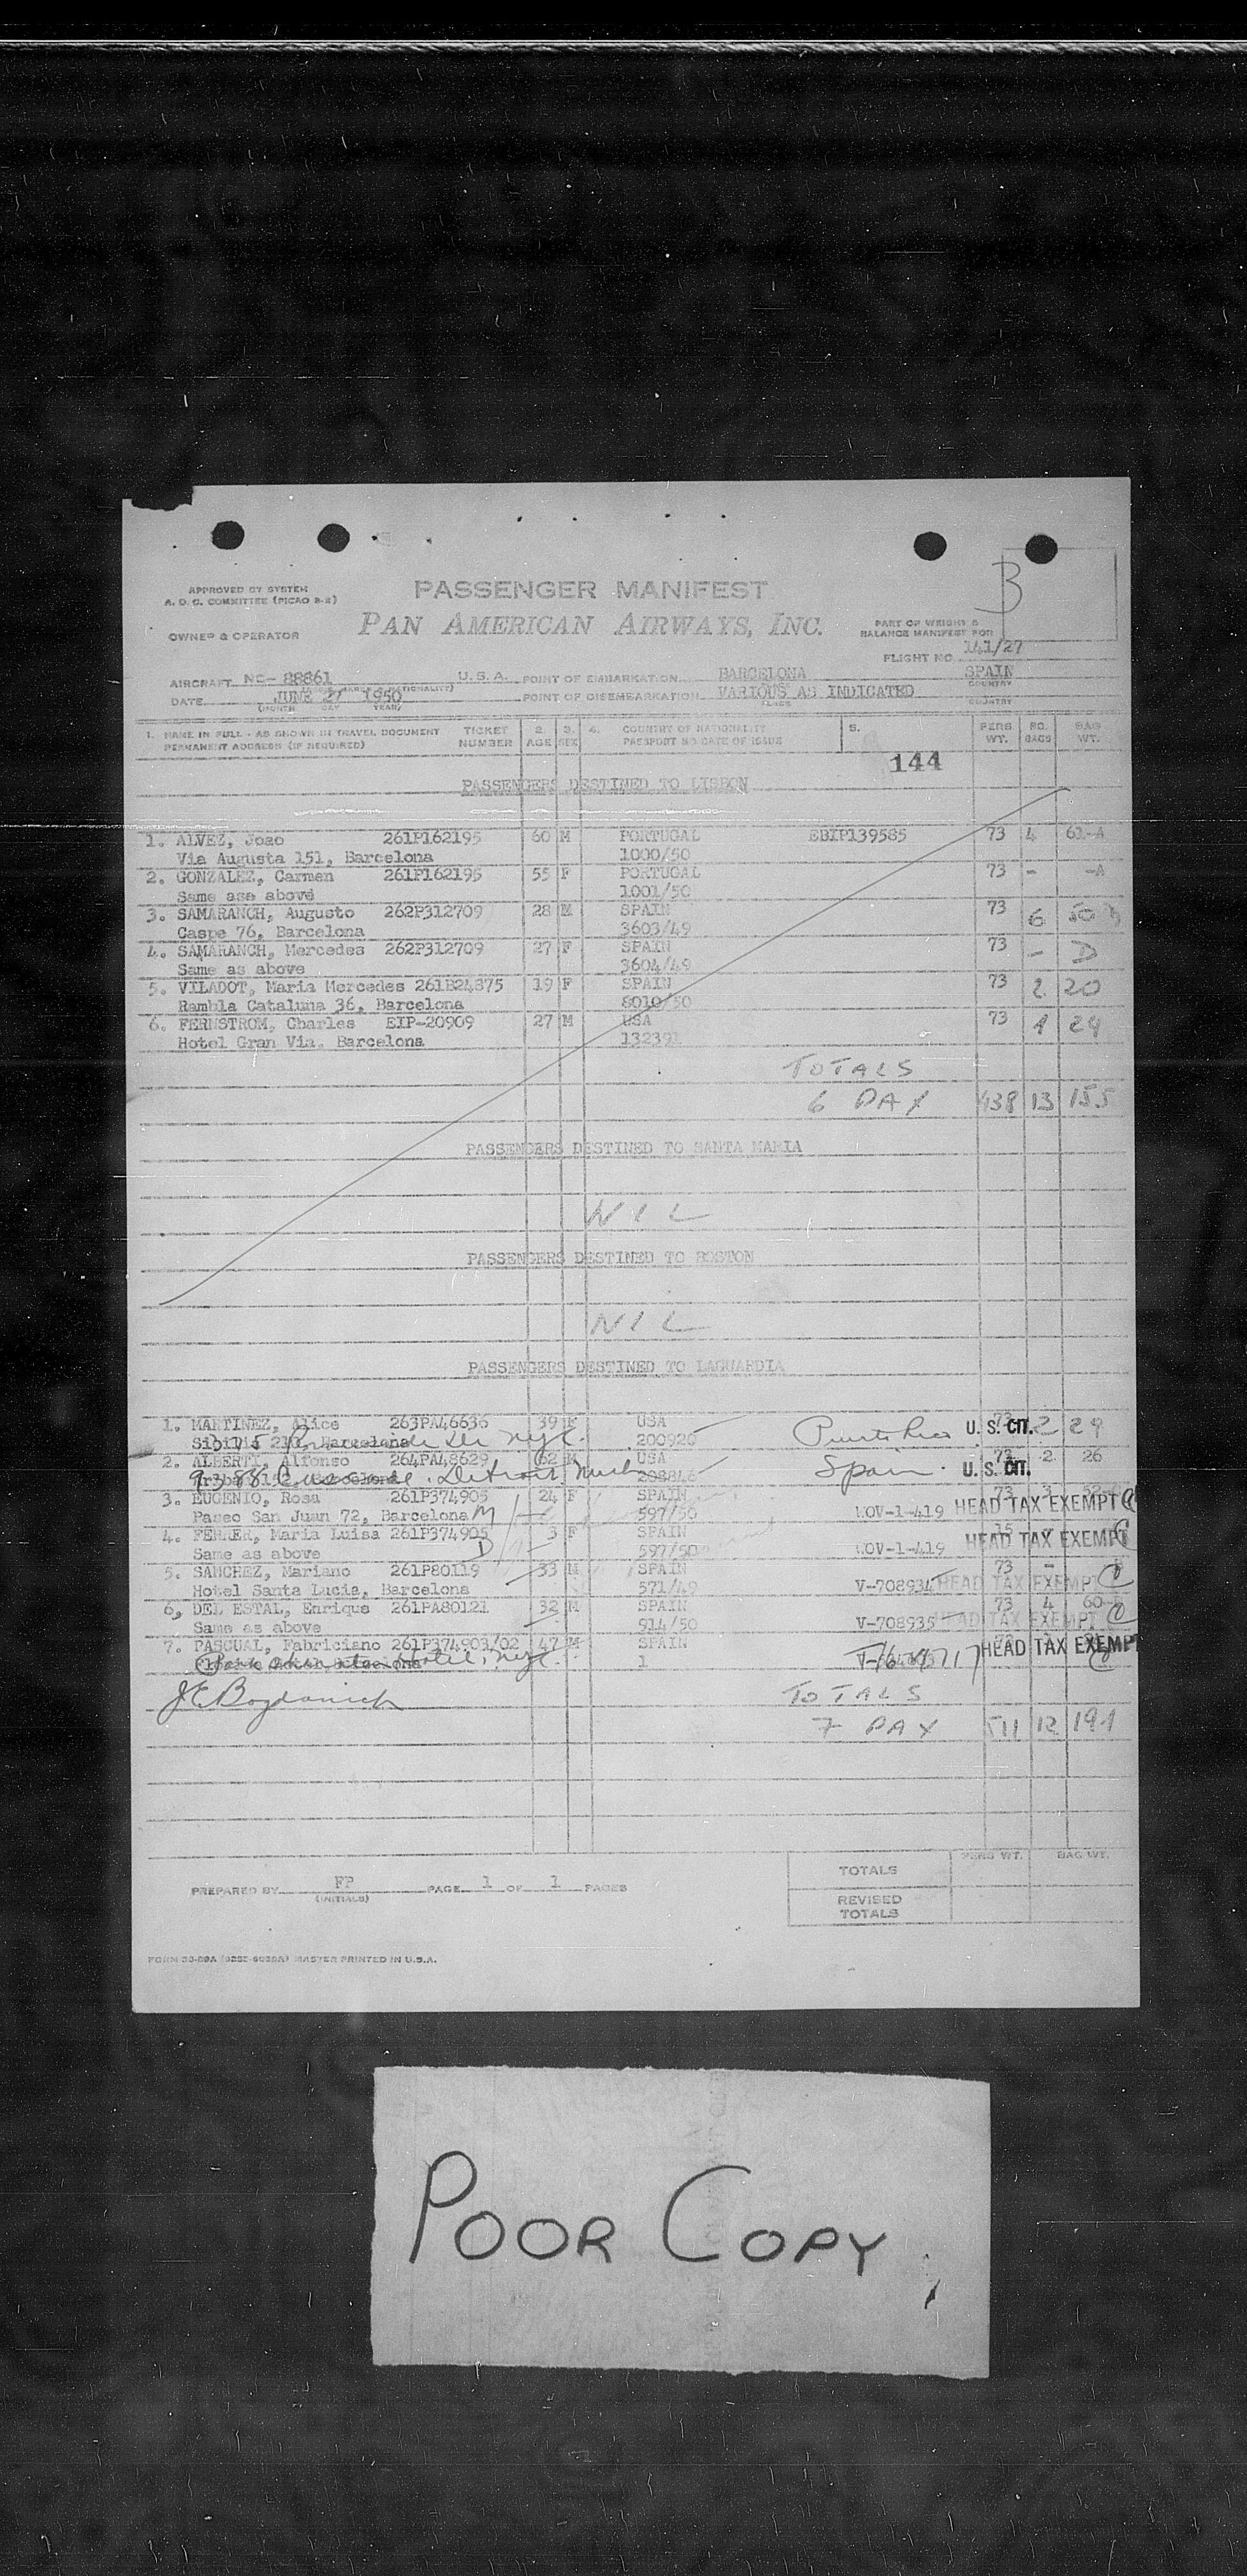 3
APPROVED BY SYSTEM
A. O. C. COMMITTEE (PICAO 2-2)
PASSENGER MANIFEST
OWNER & OPERATOR
PAN AMERICAN AIRWAYS, INC.
PART OF WEIGHT &
BALANCE MANIFEST FOR
FLIGHT NO. 141/27
AIRCRAFT NC- 88861 U.S.A. POINT OF EMBARKATION BARCELONA SPAIN
DATE JUNE 27 1950 POINT OF DISEMBARKATION VARIOUS AS INDICATED
(MONTH DAY YEAR) PLACE COUNTRY
1. NAME IN FULL - AS SHOWN IN TRAVEL DOCUMENT TICKET 2. 3. 4. COUNTRY OF NATIONALITY 5. PERS NO. BAG
PERMANENT ADDRESS (IF REQUIRED) NUMBER AGE SEX PASSPORT NO DATE OF ISSUE WT. BAGS WT.
144
PASSENGERS DESTINED TO LISBON
1. ALVEZ, Joao 261P162195 60 M PORTUGAL EBIP139585 73 4 61-A
Via Augusta 151, Barcelona 1000/50
2. GONZALEZ, Carmen 261P162195 55 F PORTUGAL 73 - -A
Same ase above 1001/50
3. SAMARANCH, Augusto 262P312709 28 M SPAIN 73 6 50
Caspe 76, Barcelona 3603/49
4. SAMARANCH, Mercedes 262P312709 27 F SPAIN 73 - D
Same as above 3604/49
5. VILADOT, Maria Mercedes 261B24875 19 F SPAIN 73 2 20
Rambla Cataluna 36, Barcelona 8010/50
6. FERNSTROM, Charles EIP-20909 27 M USA 73 1 24
Hotel Gran Via, Barcelona 132391
TOTALS
6 PAX 438 13 155
PASSENGERS DESTINED TO SANTA MARIA
NIL
PASSENGERS DESTINED TO BOSTON
NIL
PASSENGERS DESTINED TO LAGUARDIA
1. MARTINEZ, Alice 263PA46636 39 F USA Puerto Rico U. S. CIT. 73 2 29
Barcelona nyc. 200920
2. ALBERTI, Alfonso 264PA48629 62 M USA Spain U. S. CIT. 73 2 26
9388 Detroit Mich
3. EUGENIO, Rosa 261P374905 24 F SPAIN 73
Paseo San Juan 72, Barcelona M 597/50 NOV-1-419 HEAD TAX EXEMPT
4. FERRER, Maria Luisa 261P374905 3 F SPAIN HEAD TAX EXEMPT
Same as above D 597/50 NOV-1-419
5. SANCHEZ, Mariano 261P80119 33 M SPAIN 73 -
Hotel Santa Lucia, Barcelona 571/49 V-708934 HEAD TAX EXEMPT
6, DEL ESTAL, Enrique 261PA80121 32 M SPAIN 73 4 60
Same as above 914/50 V-708935 HEAD TAX EXEMPT
7. PASCUAL, Fabriciano 261P374903/02 47 M SPAIN HEAD TAX EXEMPT
Hotel, nyc. 1
J E Bogdanich
TOTALS
7 PAX 511 12 191
PERS WT. BAG WT.
TOTALS
PREPARED BY FP PAGE 1 OF 1 PAGES
(INITIALS)
REVISED
TOTALS
MASTER PRINTED IN U.S.A.
POOR COPY